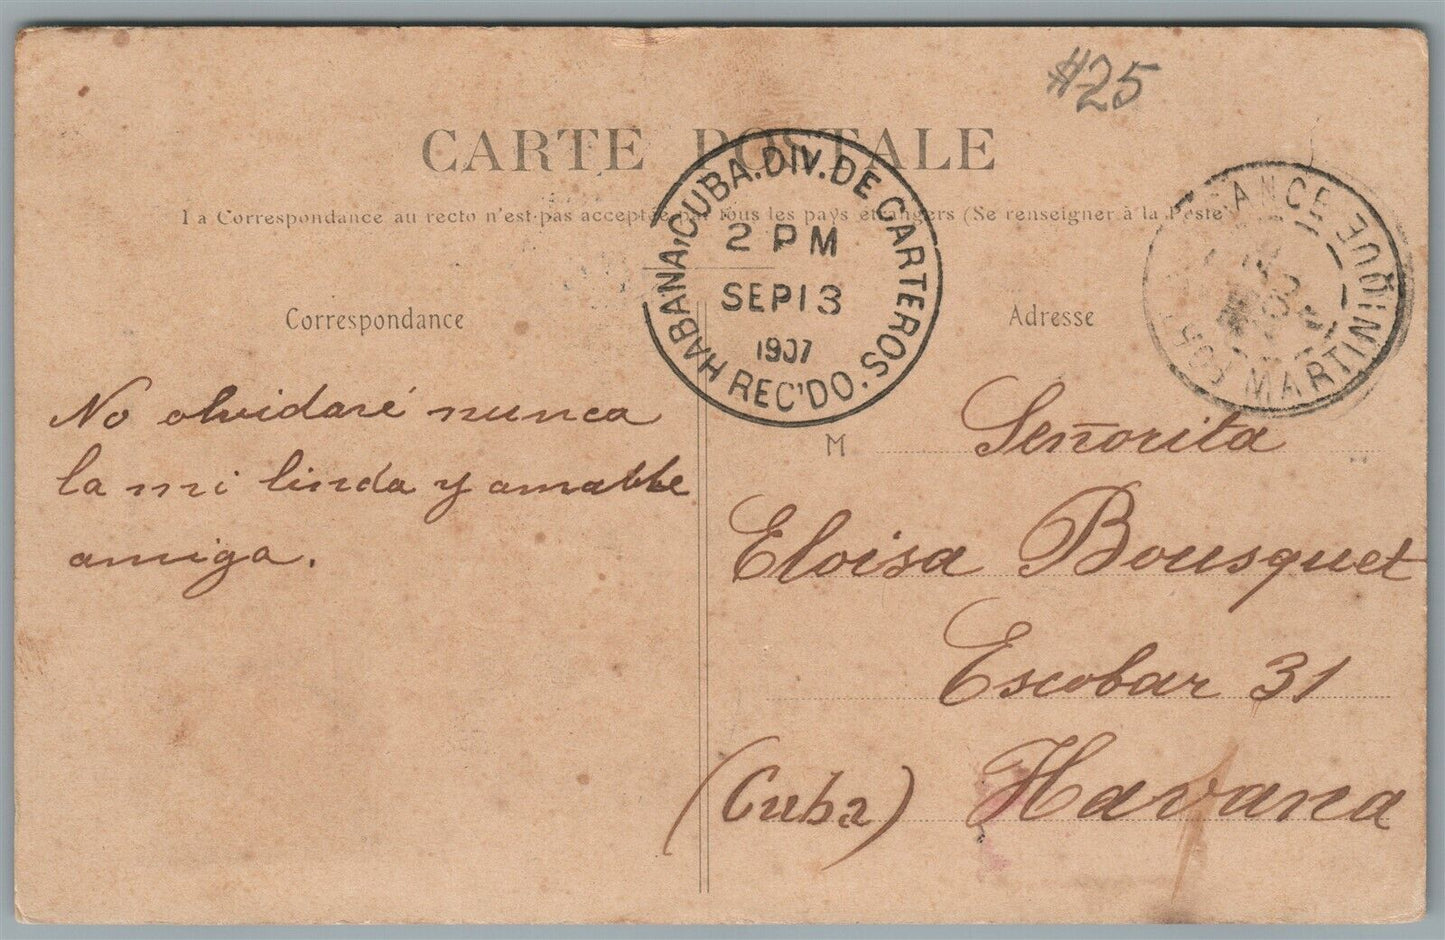 #25
CARTE POSTALE
La Correspondance au recto n'est pas acceptée par tous les pays étrangers (Se renseigner à la Poste
HABANA, CUBA. DIV. DE CARTEROS.
2 PM
SEP 13
1907
REC'DO.
FORT DE FRANCE
MARTINIQUE
Correspondance
Adresse
No olvidaré nunca
la mi linda y amable
amiga.
M
Señorita
Eloisa Bousquet
Escobar 31
(Cuba) Havana